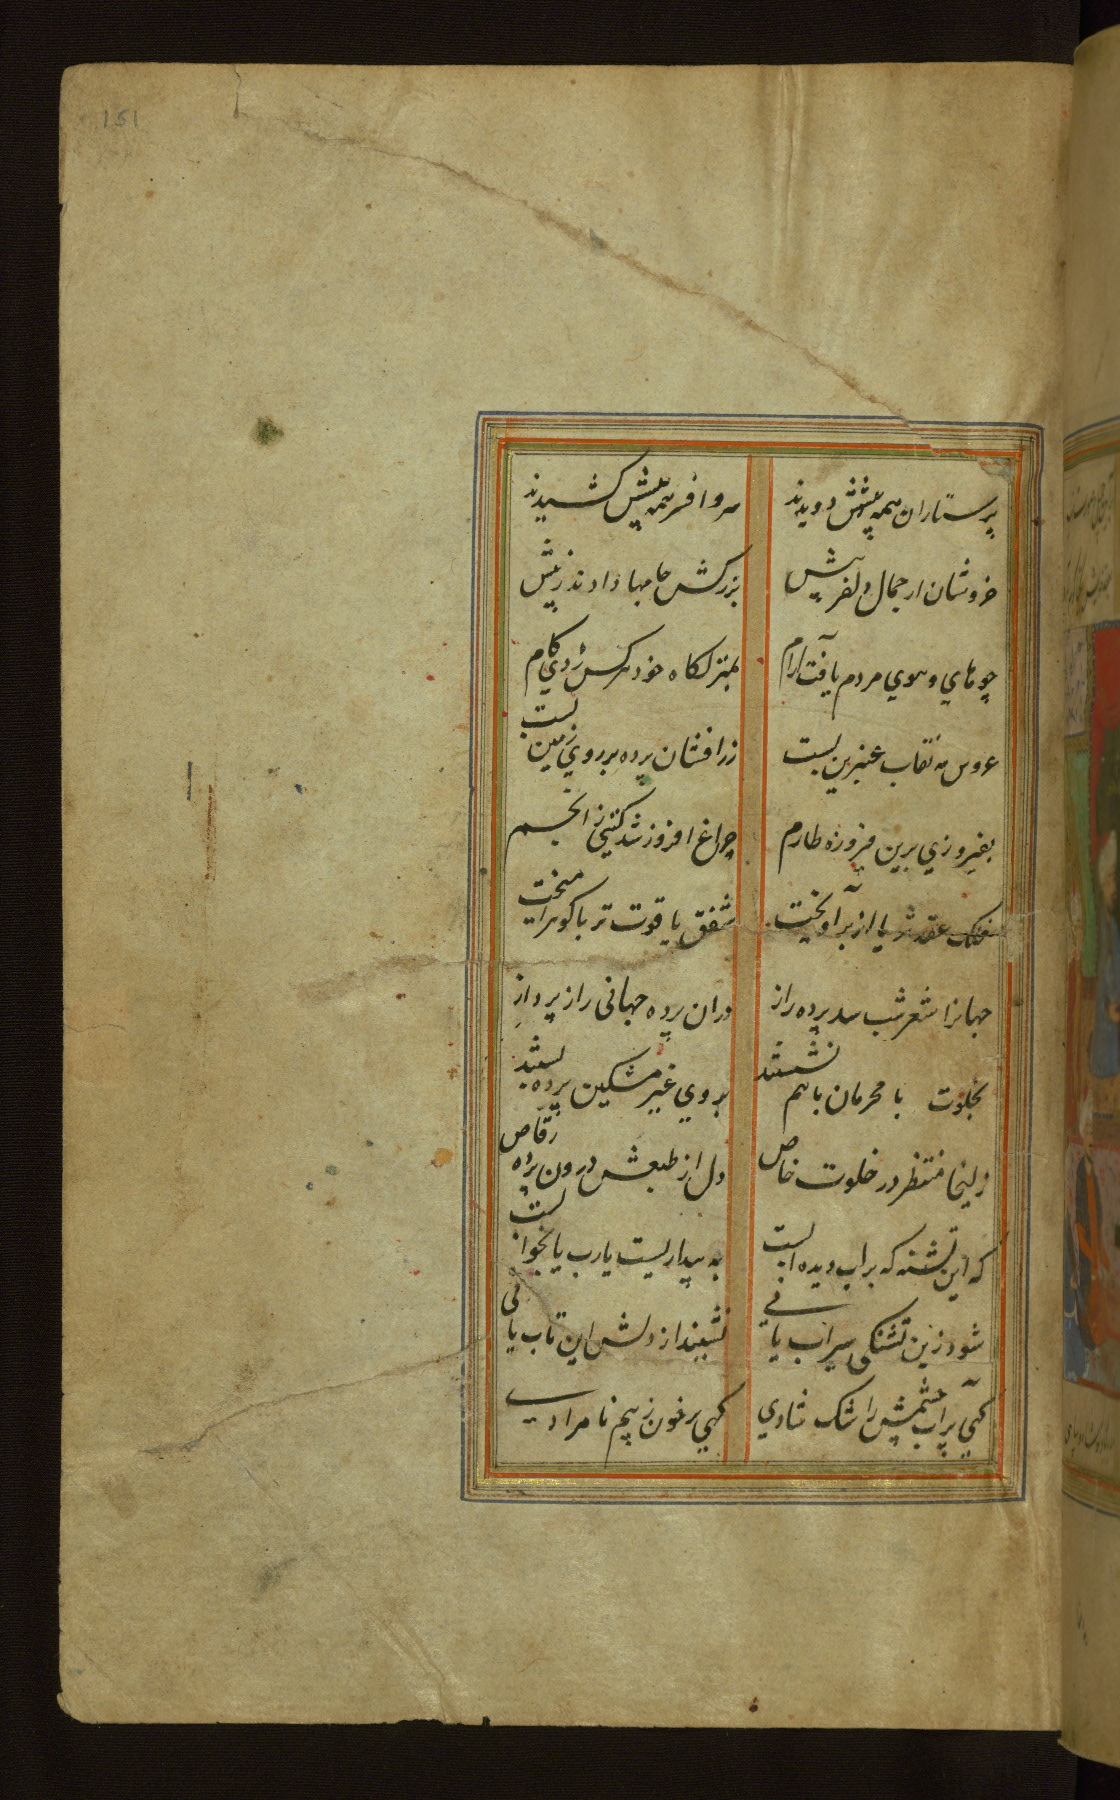 151
پرستاران همه پیشش دویدند سر و افسر همه پیشش کشیدند
خروشان از جمال دلفریبش بزرکش جامها دادند زیبش
چو های و هوی مردم یافت آرام بمنزلکاه خود هرکس زدی کام
عروس مه نقاب عنبرین بست زرافشان پرده بر روی زمین بست
بفیروزی برین فیروزه طارم چراغ افروز شد کیتی ز انجم
فلک عقد ثریا از بر آویخت شفق یاقوت تر با کوهر آمیخت
جهانرا شعر شب سد پرده راز دران پرده جهانی راز پرداز
بخلوت با محرمان باهم نشستند بروی غیر مشکین پرده بستند
زلیخا منتظر در خلوت خاص دل از طبعش درون پرده رقاص
که این تشنه که بر لب دیده ابست به بیداریست یارب یا بخوابست
شود زین تشنکی سیراب یا نی نشیند از دلش این تاب یا نی
کهی پر آب چشمش ز اشک شادی کهی پر خون ز بیم نامرادی